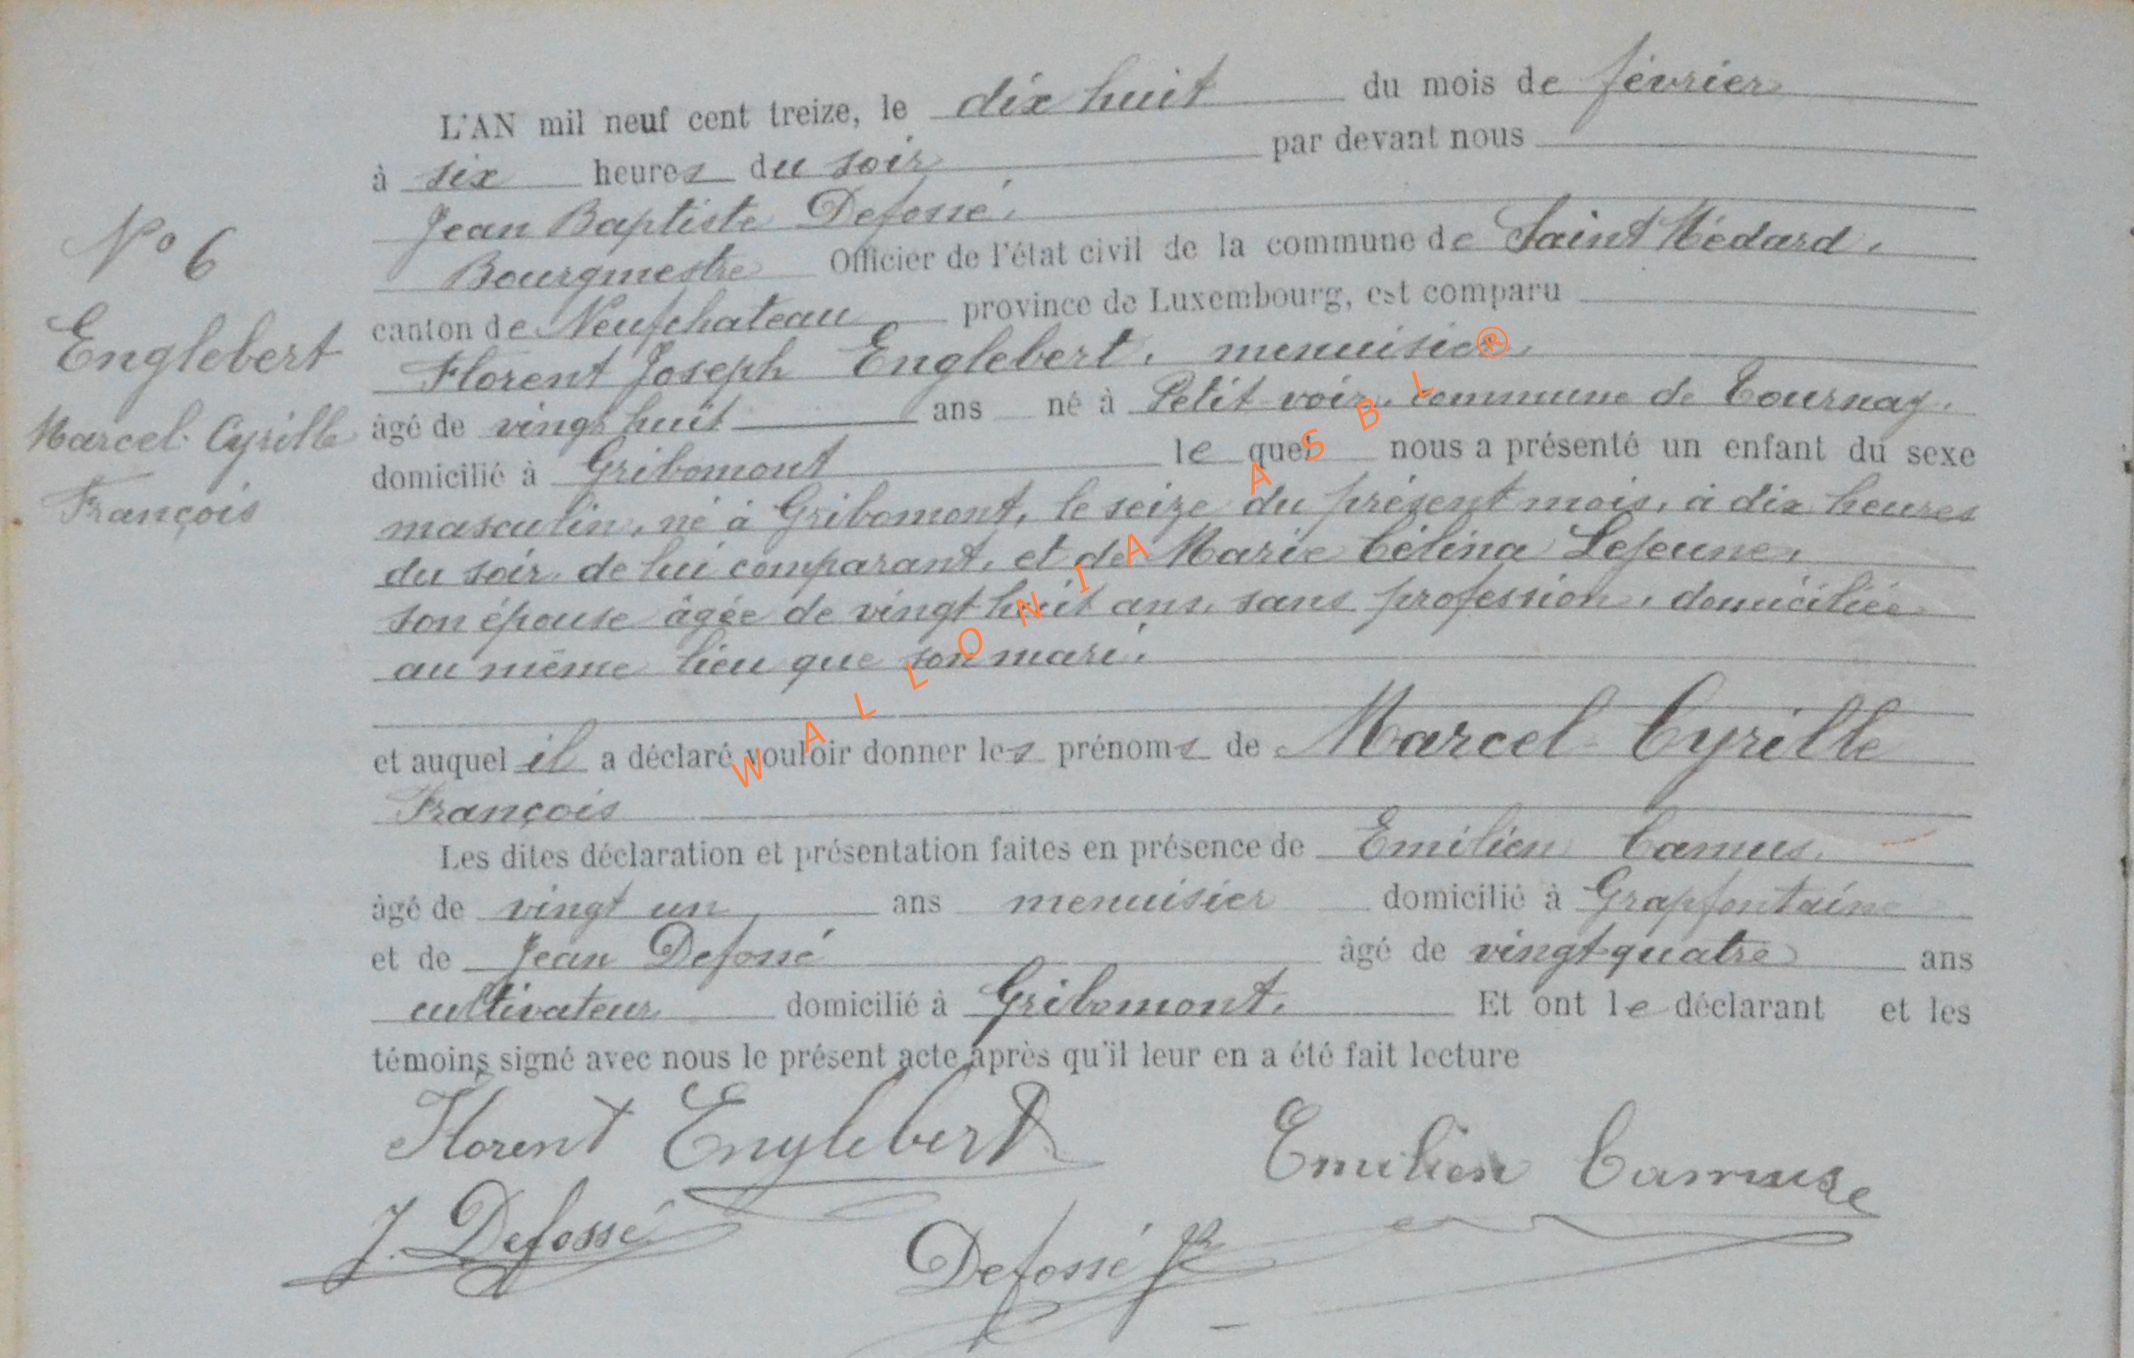 L'AN mil neuf cent treize, le dix huit du mois de février
à six heures du soir par devant nous
Jean Baptiste Defossé,
Bourgmestre Officier de l'état civil de la commune de Saint Médard,
canton de Neufchateau province de Luxembourg, est comparu
Florent Joseph Englebert, menuisier,
âgé de vingt huit ans né à Petit voir, commune de Tournay,
domicilié à Gribomont le quel nous a présenté un enfant du sexe
masculin, né à Gribomont, le seize du présent mois, à dix heures
du soir, de lui comparant, et de Marie Célina Lejeune,
son épouse âgée de vingt huit ans, sans profession, domiciliée
au même lieu que son mari,
et auquel il a déclaré vouloir donner les prénoms de Marcel Cyrille
François
Les dites déclaration et présentation faites en présence de Emilien Camus,
âgé de vingt un, ans menuisier domicilié à Grapfontaine
et de Jean Defossé âgé de vingt-quatre ans
cultivateur domicilié à Gribomont. Et ont le déclarant et les
témoins signé avec nous le présent acte après qu'il leur en a été fait lecture
Florent Englebert
Emilien Camus
J. Defossé
Defossé
N° 6
Englebert
Marcel Cyrille
François
WALLONIA ASBL ®